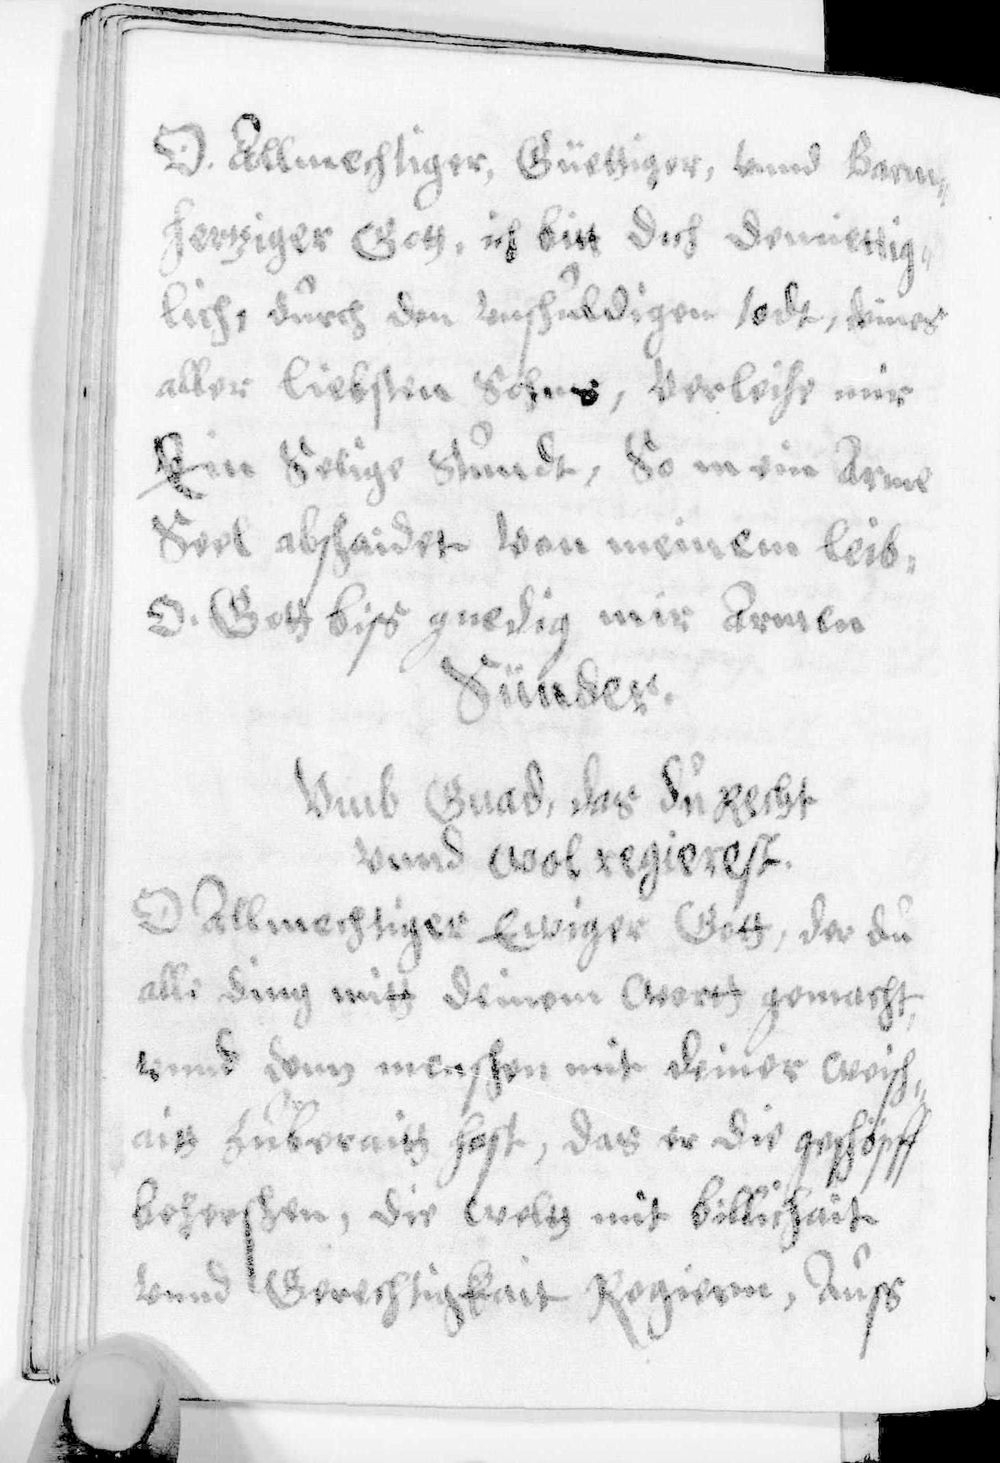 O. Allmechtiger, Güettiger, vnnd Barm„
hertziger Gott, ich bitt dich demiettig„
lich, durch den vnschuldigen todt, deines
aller liebsten Sohns, Verleihe mir
Ein Selige Stundt, So mein Arme
Seel abschaidet Von meinem leib,
O. Gott biss gnedig mir Armen
Sünder.
Vmb Gnad, das du Recht
vnnd wol regierest.
O Allmechtiger Ewiger Gott, der du
alle ding mitt deinem Wortt gemacht,
vnnd denn menschen mit deiner Weish„
aitt zuberaitt hast, das er die geschöpff
behershen, die Weltt mit billichait
Vnnd Gerechtigkait Regiern, Auss